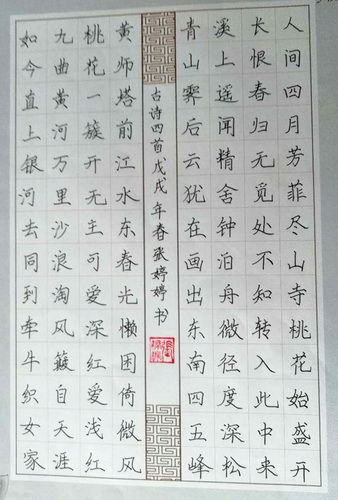 人间四月芳菲尽山寺桃花始盛开
长恨春归无觅处不知转入此中来
溪上遥闻精舍钟泊舟微径度深松
青山霁后云犹在画出东南四五峰
古诗四首戊戌年春张婷婷书
黄师塔前江水东春光懒困倚微风
桃花一簇开无主可爱深红爱浅红
九曲黄河万里沙浪淘风簸自天涯
如今直上银河去同到牵牛织女家